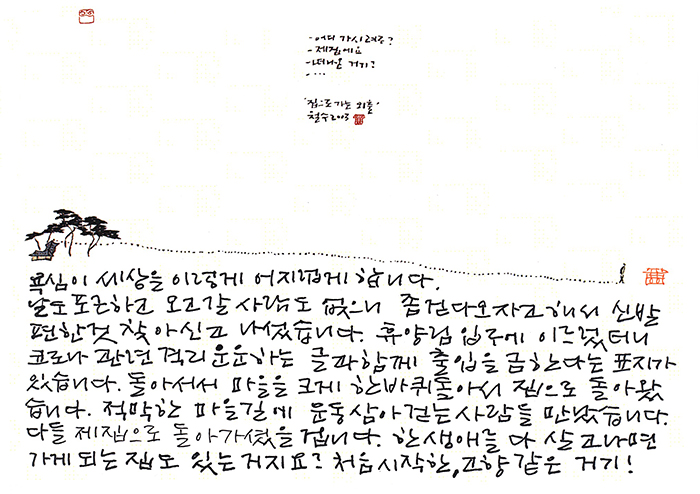 - 어디 가시려구?
- 제집에요
- 떠나온 거기?
- ...
'집으로 가는 외출'
철수 2003
욕심이 세상을 이렇게 어지럽게 합니다.
날도 포근하고 오고갈 사람도 없으니 좀 걷다오자고 해서 신발
편한것 찾아신고 나섰습니다. 휴양림 입구에 이르렀더니
코로나 관련 격리 운운하는 글과 함께 출입을 금한다는 표지가
있습니다. 돌아서서 마을을 크게 한바퀴 돌아서 집으로 돌아왔
습니다. 적막한 마을길에 운동삼아 걷는 사람들 만났습니다.
다들 제집으로 돌아가셨을 겁니다. 한 생애를 다 살고나면
가게 되는 집도 있는 거지요? 처음 시작한, 고향 같은 거기!